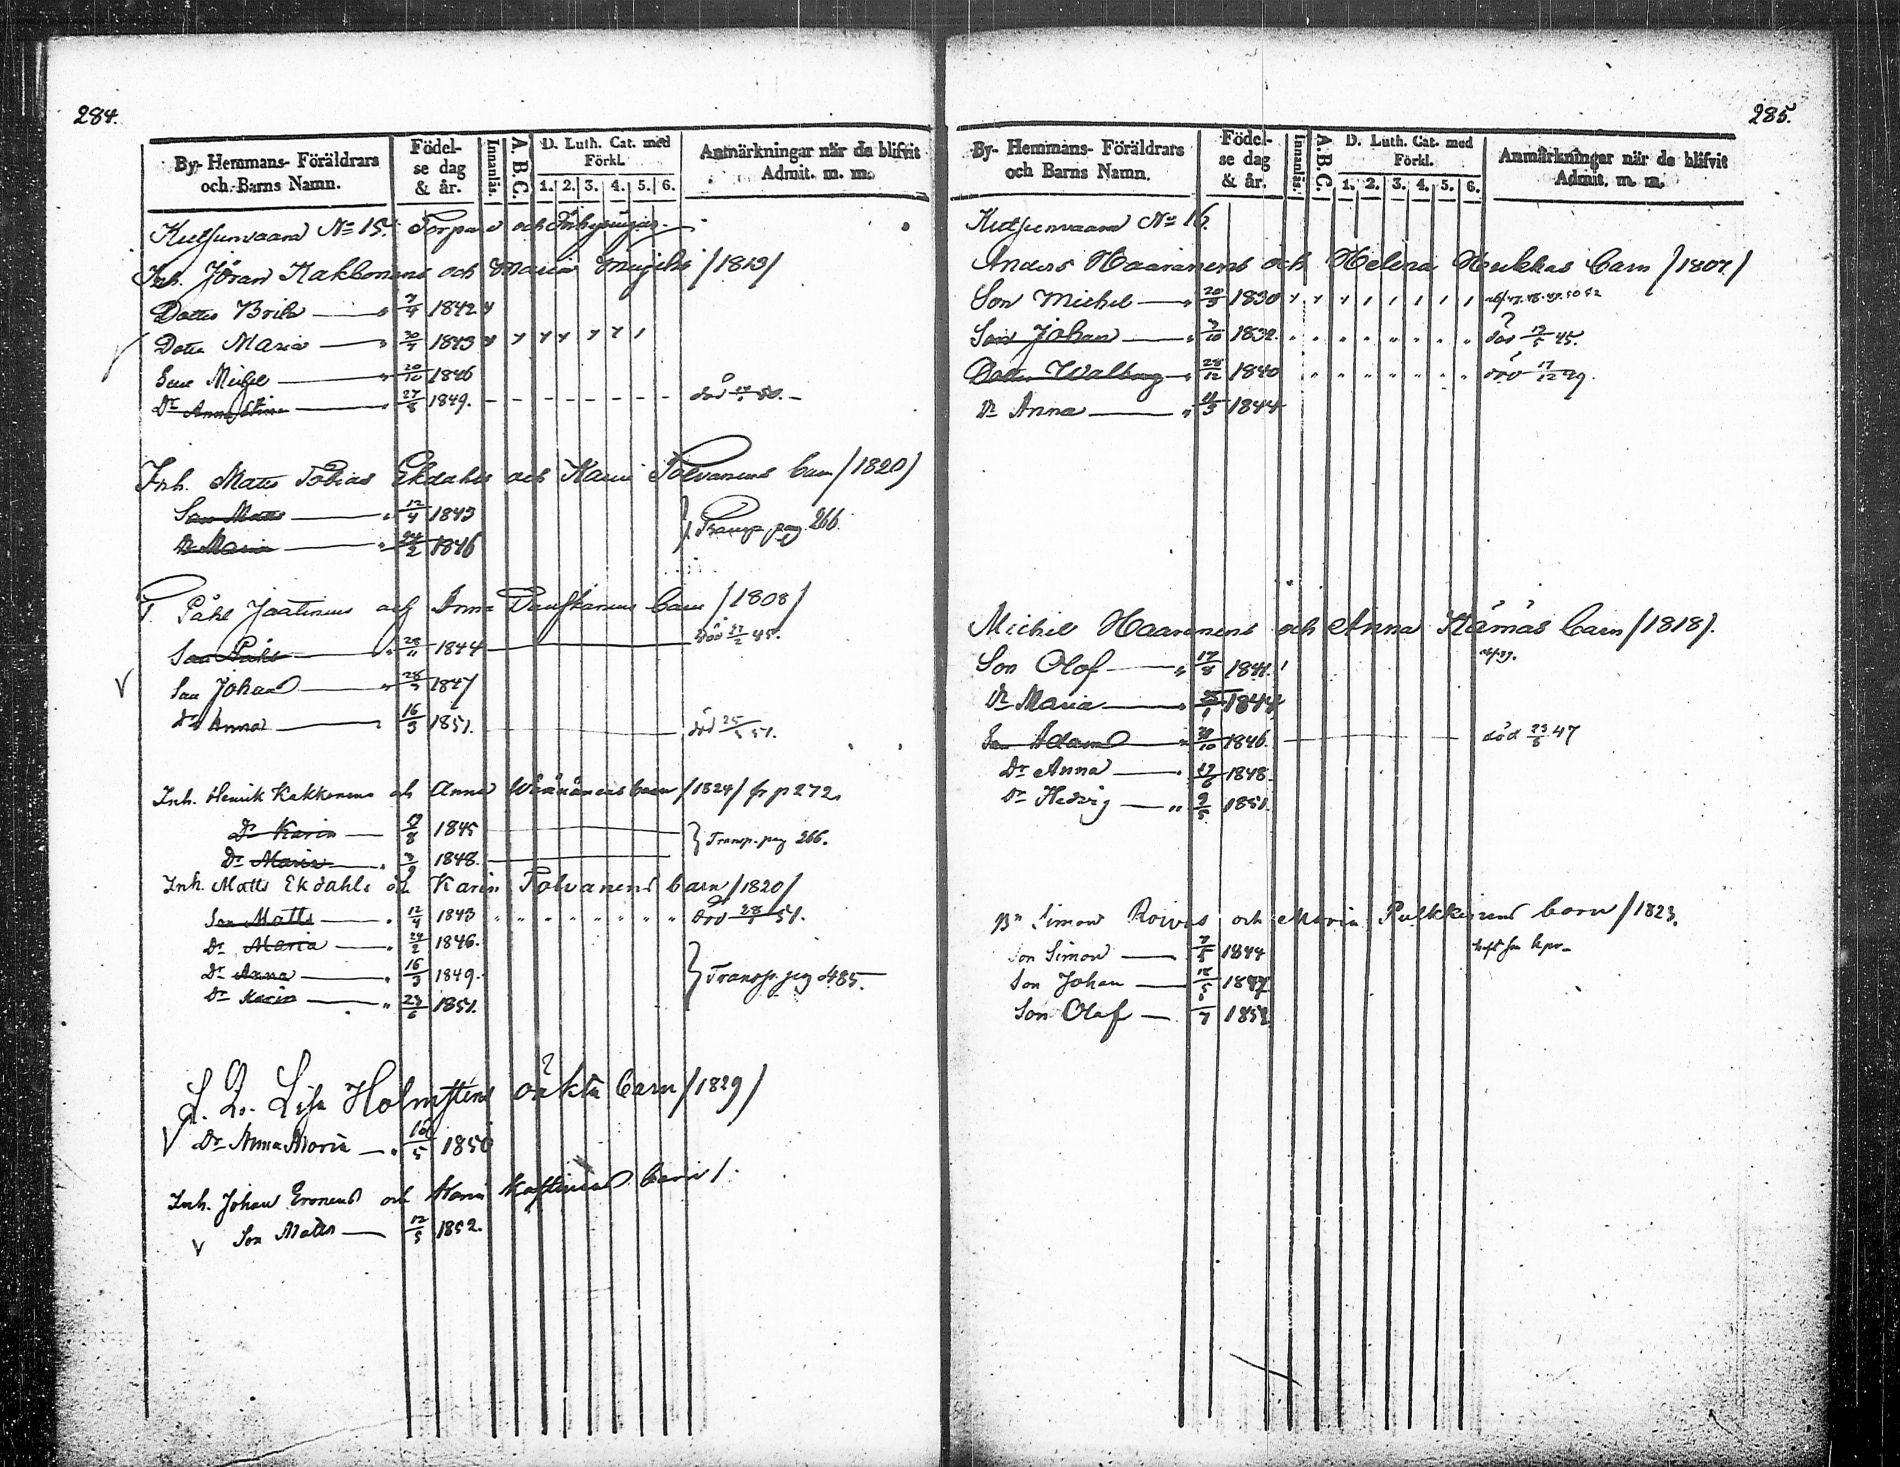 284.
By- Hemmans- Föräldrars och Barns Namn.
Födelse dag & år.
Innanläs.
A. B. C.
D. Luth. Cat. med Förkl.
1. 2. 3. 4. 5. 6.
Anmärkningar när de blifvit Admit. m. m.
Kutsunvaara No 15. Torpare och Inhysingar.
Inh. Jöran Kakkonens och Maria /1819/
Dotter Brita 7/4 1842
Dotter Maria 1843
Son Michel 20/10 1846
Dr Anna Stina 27/8 1849. död 50.
Inh. Matts Tobias Ekdahls och Karin Polvanens barn /1820/
Son Matts 12/4 1843
Dr Maria 24/2 1846
Transp. pag 266.
T. Påhl Jaatinens och Anna barn /1808/
Son Påhl 1844 död 27/2 45.
Son Johan 1847
Dr Anna 16/3 1851. död 25/5 51.
Inh. Henrik Kakkonens och Anna Väänänens barn /1824/ fr p 272.
Dr Karin 1845
Dr Maria 1848.
Transp. pag 266.
Inh. Matts Ekdahls och Karin Polvanens barn /1820/
Son Matts 12/4 1843 död 51.
Dr Maria 24/2 1846.
Dr Anna 16/3 1849.
Dr Karin 23/6 1851.
Transp. pag 485.
Lisa Holmstens oäkta barn /1829/
Dr Anna Maria 1850
Inh. Johan Eronens och barn /
Son Matts 12/5 1852.
285.
By- Hemmans- Föräldrars och Barns Namn.
Födelse dag & år.
Innanläs.
A. B. C.
D. Luth. Cat. med Förkl.
1. 2. 3. 4. 5. 6.
Anmärkningar när de blifvit Admit. m. m.
Kutsunvaara No 16.
Anders Haaranens och Helena Heikkas barn /1807/
Son Michel 20/3 1830
Son Johan 1832. död 45.
Dotter Walborg 28/12 1840 död 17/12 49.
Dr Anna 1844
Michel Haaranens och Anna Kämäs barn /1818/.
Son Olof 17/8 1841.
Dr Maria 1844
Son Adam 1846. död 23/5 47
Dr Anna 1848.
Dr Hedvig 9/5 1851.
Bn Simon Roivas och Maria Pulkkinens barn /1823.
Son Simon 7/5 1844
Son Johan 1847
Son Olof